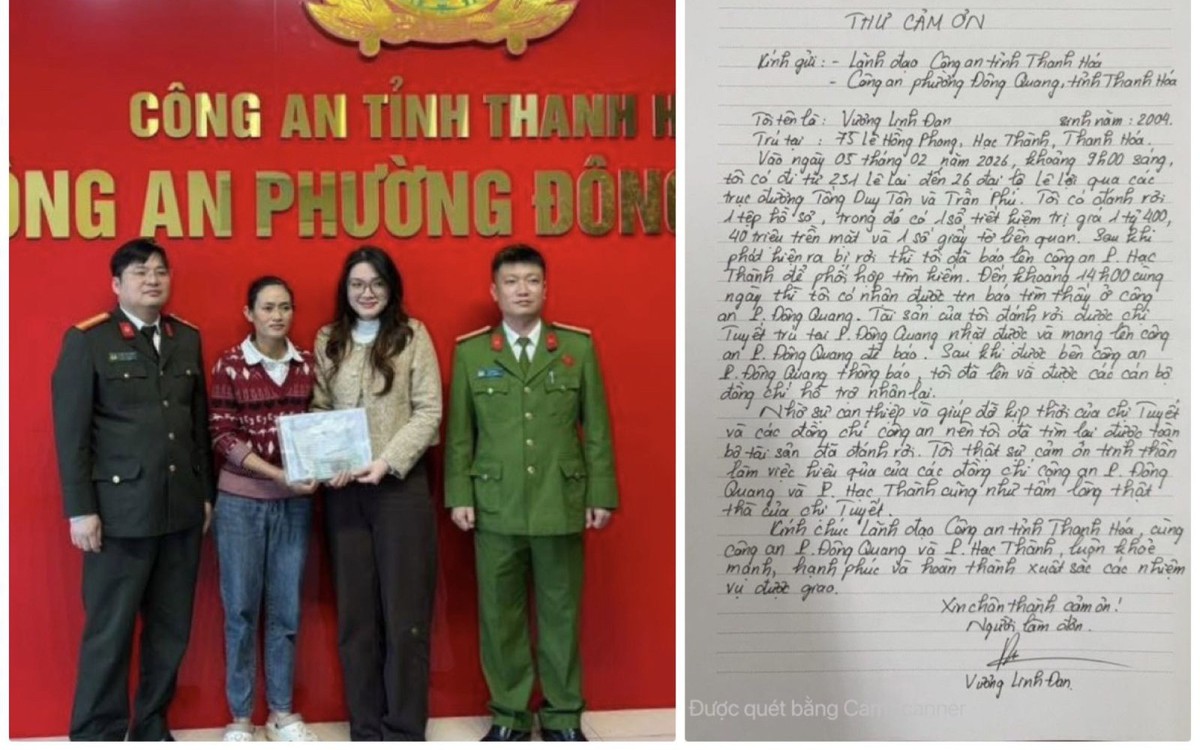 CÔNG AN TỈNH THANH H
ÔNG AN PHƯỜNG ĐÔNG
THƯ CẢM ƠN
Kính gửi : - Lãnh đạo Công an tỉnh Thanh Hóa
- Công an phường Đông Quang, tỉnh Thanh Hóa
Tôi tên là : Vương Linh Đan sinh năm : 2004.
Trú tại : 75 Lê Hồng Phong, Hạc Thành, Thanh Hóa.
Vào ngày 05 tháng 02 năm 2026, khoảng 9h00 sáng,
tôi có đi từ 231 Lê Lai đến 26 đại lộ Lê Lợi qua các
trục đường Tống Duy Tân và Trần Phú. Tôi có đánh rơi
1 tệp hồ sơ, trong đó có 1 sổ tiết kiệm trị giá 1 tỷ 400,
40 triệu tiền mặt và 1 số giấy tờ liên quan. Sau khi
phát hiện ra bị rơi thì tôi đã báo lên công an P. Hạc
Thành để phối hợp tìm kiếm. Đến khoảng 14h00 cùng
ngày thì tôi có nhận được tin báo tìm thấy ở công
an P. Đông Quang. Tài sản của tôi đánh rơi được chị
Tuyết trú tại P. Đông Quang nhặt được và mang lên công
an P. Đông Quang để báo. Sau khi được bên công an
P. Đông Quang thông báo, tôi đã lên và được các cán bộ
đồng chí hỗ trợ nhận lại.
Nhờ sự can thiệp và giúp đỡ kịp thời của chị Tuyết
và các đồng chí công an nên tôi đã tìm lại được toàn
bộ tài sản đã đánh rơi. Tôi thật sự cảm ơn tinh thần
làm việc hiệu qủa của các đồng chí công an P. Đông
Quang và P. Hạc Thành cũng như tấm lòng thật
thà của chị Tuyết.
Kính chúc Lãnh đạo Công an tỉnh Thanh Hóa, cùng
công an P. Đông Quang và P. Hạc Thành, luôn khỏe
mạnh, hạnh phúc và hoàn thành xuất sắc các nhiệm
vụ được giao.
Xin chân thành cảm ơn!
Người làm đơn.
Vương Linh Đan.
Được quét bằng CamScanner